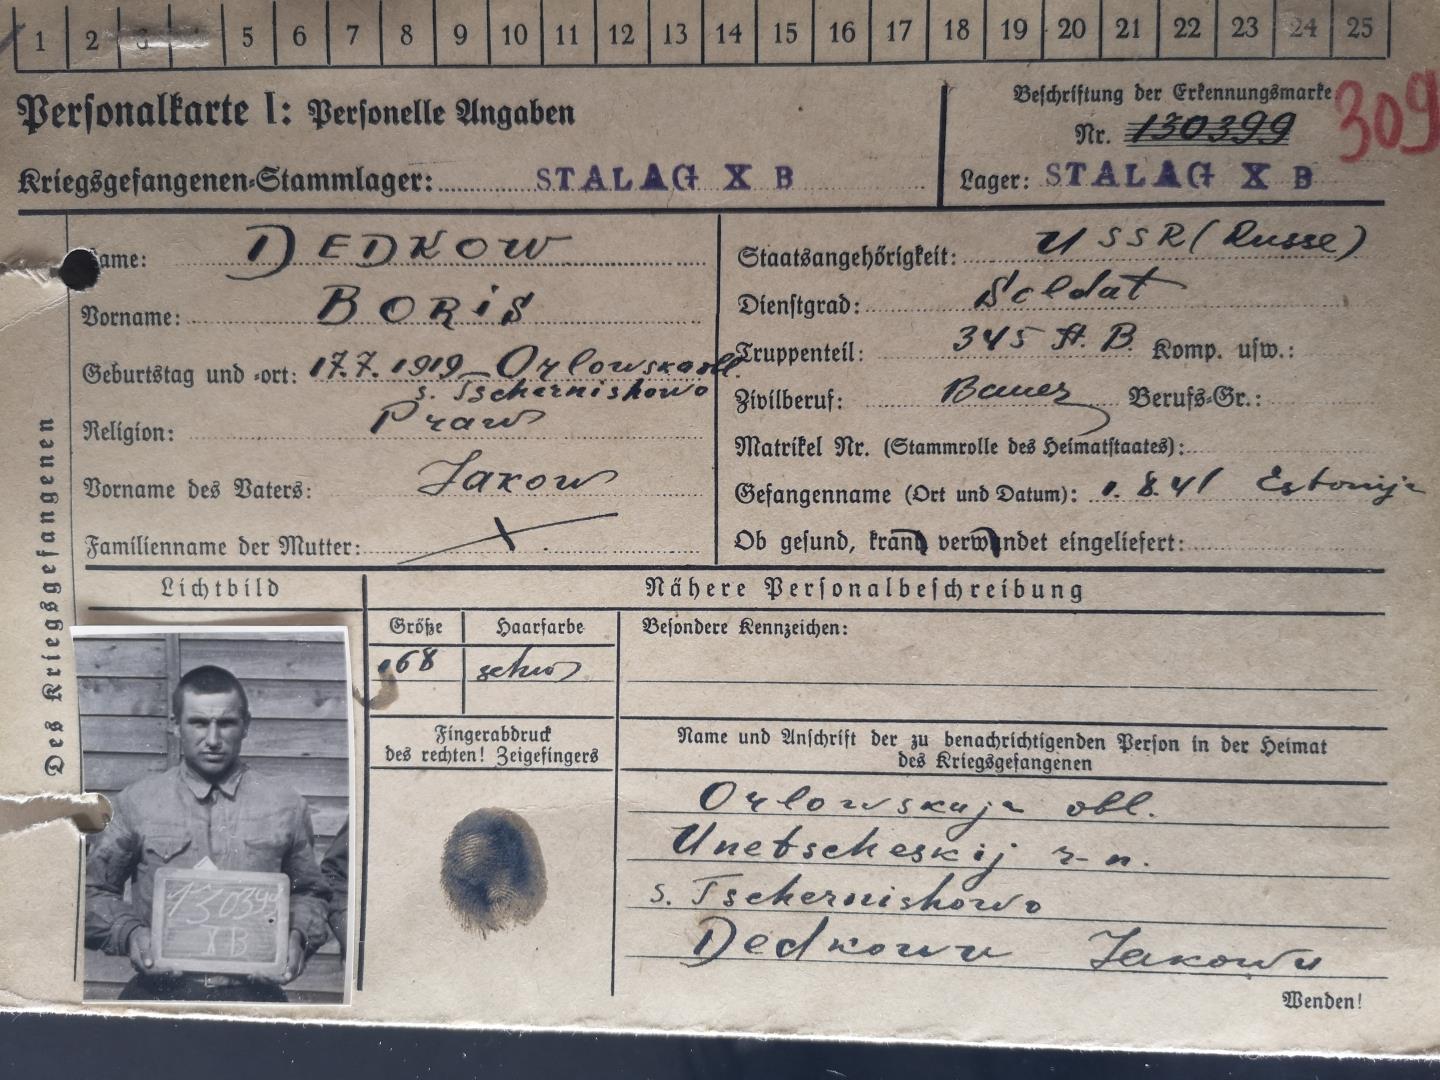 1 2 3 4 5 6 7 8 9 10 11 12 13 14 15 16 17 18 19 20 21 22 23 24 25
Personalkarte I: Personelle Angaben
Kriegsgefangenen-Stammlager: STALAG X B
Beschriftung der Erkennungsmarke
Nr. 130399
309
Lager: STALAG X B
Des Kriegsgefangenen
Name: DEDKOW
Vorname: BORIS
Geburtstag und -ort: 17.7.1919 Orlowskaobl.
s. Tschernishowo
Religion: Praw
Vorname des Vaters: Jakow
Familienname der Mutter:
Staatsangehörigkeit: USSR (Russe)
Dienstgrad: Soldat
Truppenteil: 345 St. B. Komp. usw.:
Zivilberuf: Bauer Berufs-Gr.:
Matrikel Nr. (Stammrolle des Heimatstaates):
Gefangennahme (Ort und Datum): 1.8.41 Estonija
Ob gesund, krank, verwundet eingeliefert:
Lichtbild
Nähere Personalbeschreibung
Größe Haarfarbe
168 schw
Besondere Kennzeichen:
Fingerabdruck
des rechten! Zeigefingers
Name und Anschrift der zu benachrichtigenden Person in der Heimat
des Kriegsgefangenen
Orlowskaja obl.
Unetscheskij r-n.
s. Tschernishowo
Dedkow Jakow
130399
X B
Wenden!